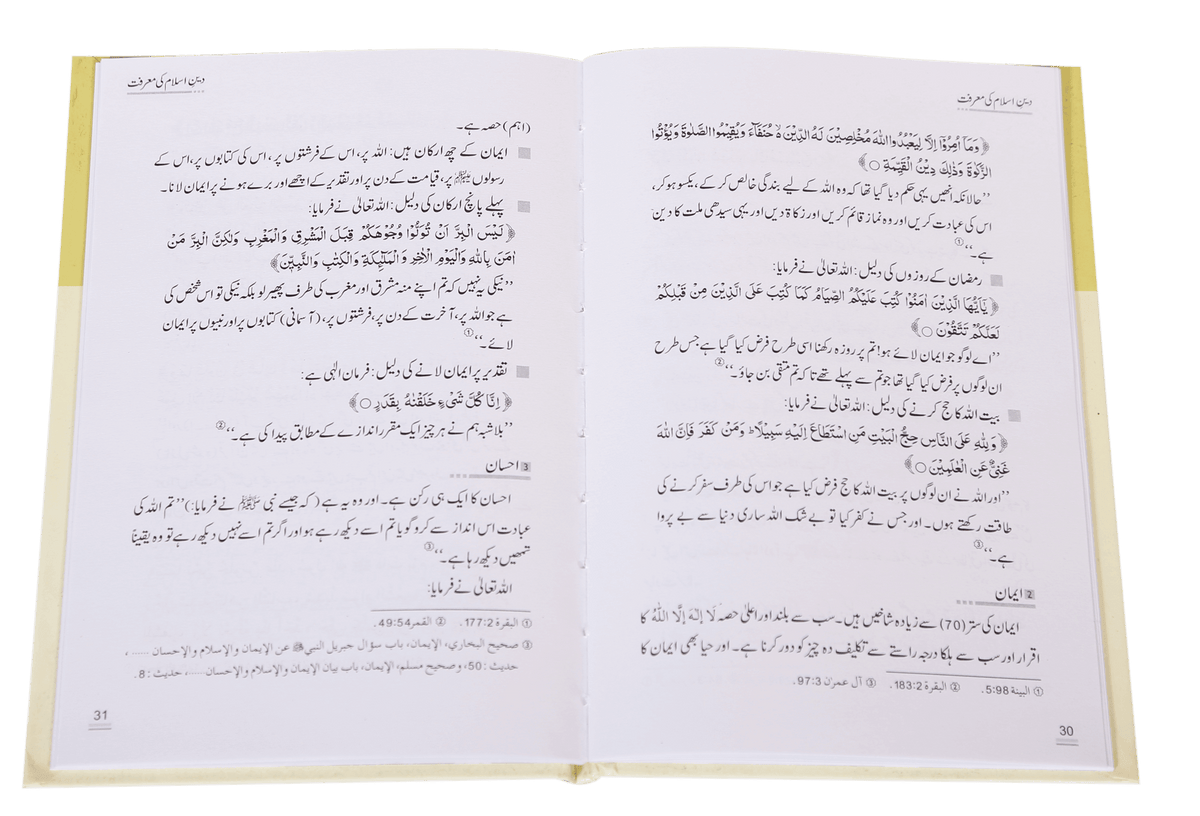 دینِ اسلام کی معرفت
﴿ وَمَآ اُمِرُوْٓا اِلَّا لِيَعْبُدُوا اللّٰهَ مُخْلِصِيْنَ لَهُ الدِّيْنَ ۙ حُنَفَآءَ وَيُقِيْمُوا الصَّلٰوةَ وَيُؤْتُوا
الزَّكٰوةَ وَذٰلِكَ دِيْنُ الْقَيِّمَةِ ○ ﴾
’’حالانکہ انھیں یہی حکم دیا گیا تھا کہ وہ اللہ کے لیے بندگی خالص کر کے، یکسو ہو کر،
اس کی عبادت کریں اور وہ نماز قائم کریں اور زکاۃ دیں اور یہی سیدھی ملت کا دین
ہے۔‘‘①
رمضان کے روزوں کی دلیل: اللہ تعالیٰ نے فرمایا:
﴿ يٰٓاَيُّهَا الَّذِيْنَ اٰمَنُوْا كُتِبَ عَلَيْكُمُ الصِّيَامُ كَمَا كُتِبَ عَلَى الَّذِيْنَ مِنْ قَبْلِكُمْ
لَعَلَّكُمْ تَتَّقُوْنَ ○ ﴾
’’اے لوگو جو ایمان لائے ہو! تم پر روزہ رکھنا اسی طرح فرض کیا گیا ہے جس طرح
ان لوگوں پر فرض کیا گیا تھا جو تم سے پہلے تھے تاکہ تم متقی بن جاؤ۔‘‘②
بیت اللہ کا حج کرنے کی دلیل: اللہ تعالیٰ نے فرمایا:
﴿ وَلِلّٰهِ عَلَى النَّاسِ حِجُّ الْبَيْتِ مَنِ اسْتَطَاعَ اِلَيْهِ سَبِيْلًا ؕ وَمَنْ كَفَرَ فَاِنَّ اللّٰهَ
غَنِيٌّ عَنِ الْعٰلَمِيْنَ ○ ﴾
’’اور اللہ نے ان لوگوں پر بیت اللہ کا حج فرض کیا ہے جو اس کی طرف سفر کرنے کی
طاقت رکھتے ہوں۔ اور جس نے کفر کیا تو بے شک اللہ ساری دنیا سے بے پروا
ہے۔‘‘③
2 ایمان
ایمان کی ستر (70) سے زیادہ شاخیں ہیں۔ سب سے بلند اور اعلیٰ حصہ لَا اِلٰهَ اِلَّا اللّٰهُ کا
اقرار اور سب سے ہلکا درجہ راستے سے تکلیف دہ چیز کو دور کرنا ہے۔ اور حیا بھی ایمان کا
① البینة 5:98. ② البقرة 183:2. ③ آل عمران 97:3.
30
دینِ اسلام کی معرفت
(اہم) حصہ ہے۔
ایمان کے چھ ارکان ہیں: اللہ پر، اس کے فرشتوں پر، اس کی کتابوں پر، اس کے
رسولوں ﷺ پر، قیامت کے دن پر اور تقدیر کے اچھے اور برے ہونے پر ایمان لانا۔
پہلے پانچ ارکان کی دلیل: اللہ تعالیٰ نے فرمایا:
﴿ لَيْسَ الْبِرَّ اَنْ تُوَلُّوْا وُجُوْهَكُمْ قِبَلَ الْمَشْرِقِ وَالْمَغْرِبِ وَلٰكِنَّ الْبِرَّ مَنْ
اٰمَنَ بِاللّٰهِ وَالْيَوْمِ الْاٰخِرِ وَ الْمَلٰٓئِكَةِ وَالْكِتٰبِ وَالنَّبِيّٖنَ ﴾
’’نیکی یہ نہیں کہ تم اپنے منہ مشرق اور مغرب کی طرف پھیر لو بلکہ نیکی تو اس شخص کی
ہے جو اللہ پر، آخرت کے دن پر، فرشتوں پر، (آسمانی) کتابوں پر اور نبیوں پر ایمان
لائے۔‘‘①
تقدیر پر ایمان لانے کی دلیل: فرمان الٰہی ہے:
﴿ اِنَّا كُلَّ شَيْءٍ خَلَقْنٰهُ بِقَدَرٍ ○ ﴾
’’بلاشبہ ہم نے ہر چیز ایک مقرر اندازے کے مطابق پیدا کی ہے۔‘‘②
3 احسان
احسان کا ایک ہی رکن ہے۔ اور وہ یہ ہے (کہ جیسے نبی ﷺ نے فرمایا:) ’’تم اللہ کی
عبادت اس انداز سے کرو گویا تم اسے دیکھ رہے ہو اور اگر تم اسے نہیں دیکھ رہے تو وہ یقیناً
تمھیں دیکھ رہا ہے۔‘‘③
اللہ تعالیٰ نے فرمایا:
① البقرة 177:2. ② القمر 49:54.
③ صحيح البخاري، الإيمان، باب سؤال جبريل النبي ﷺ عن الإيمان والإسلام والإحسان ......،
حديث: 50، وصحيح مسلم، الإيمان، باب بيان الإيمان والإسلام والإحسان ......، حديث: 8.
31